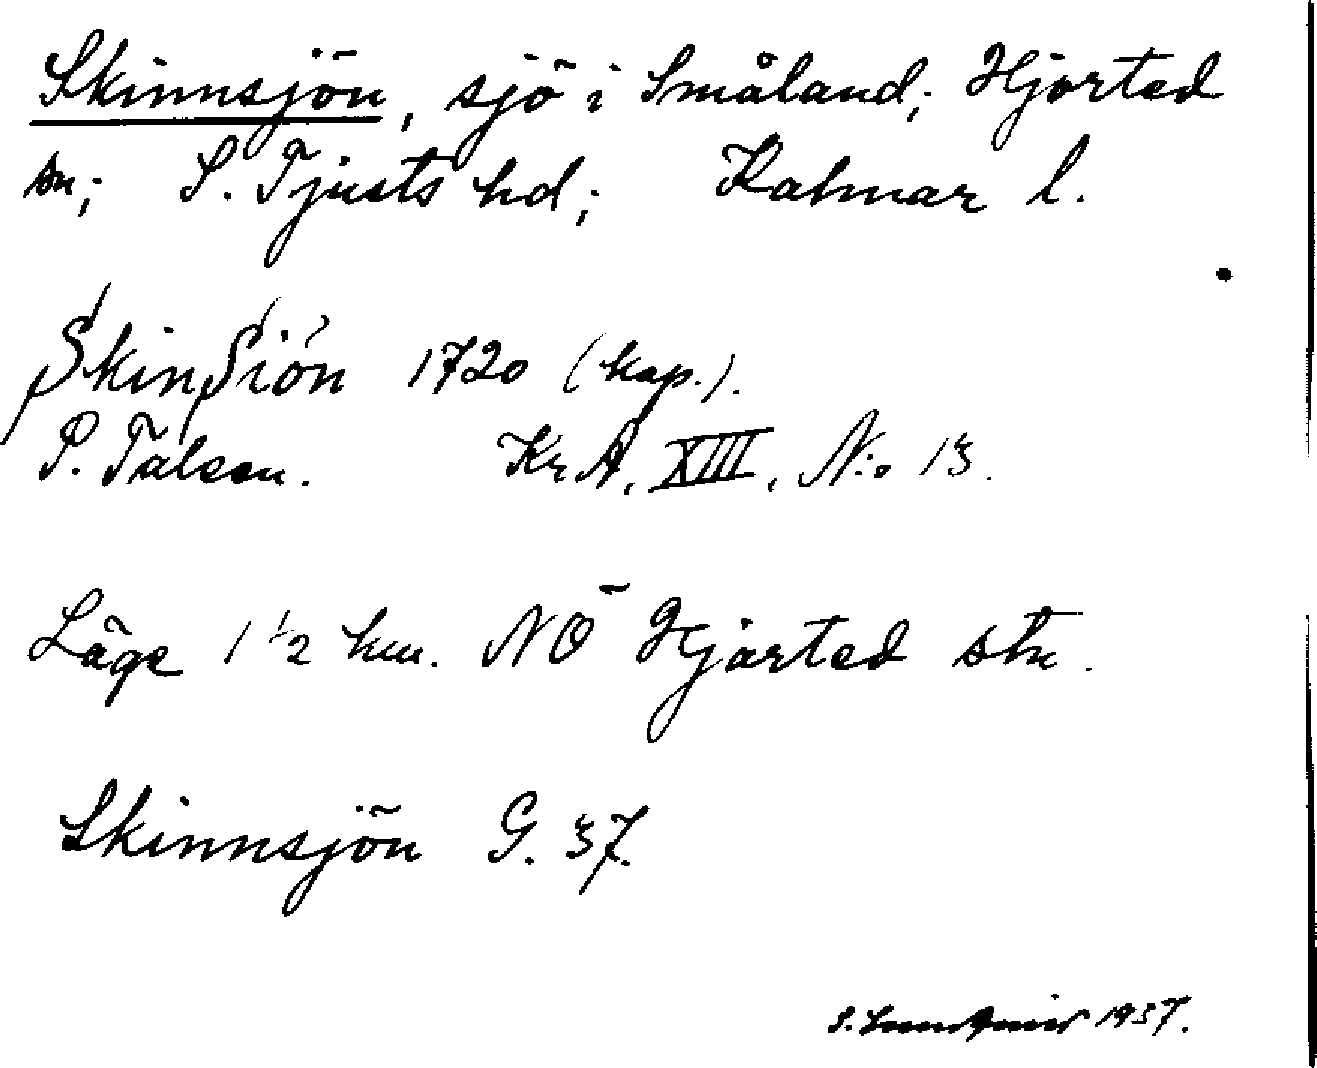 Skinnsjön, sjö i Småland; Hjorted
sn; S. Tjusts hd; Kalmar l.
SkinSiön 1720 (kop.).
P. Talean. KrA, XIII, N:o 13.
Läge 1 1/2 km. NO Hjorted stn.
Skinnsjön G. 37.
S. 1937.